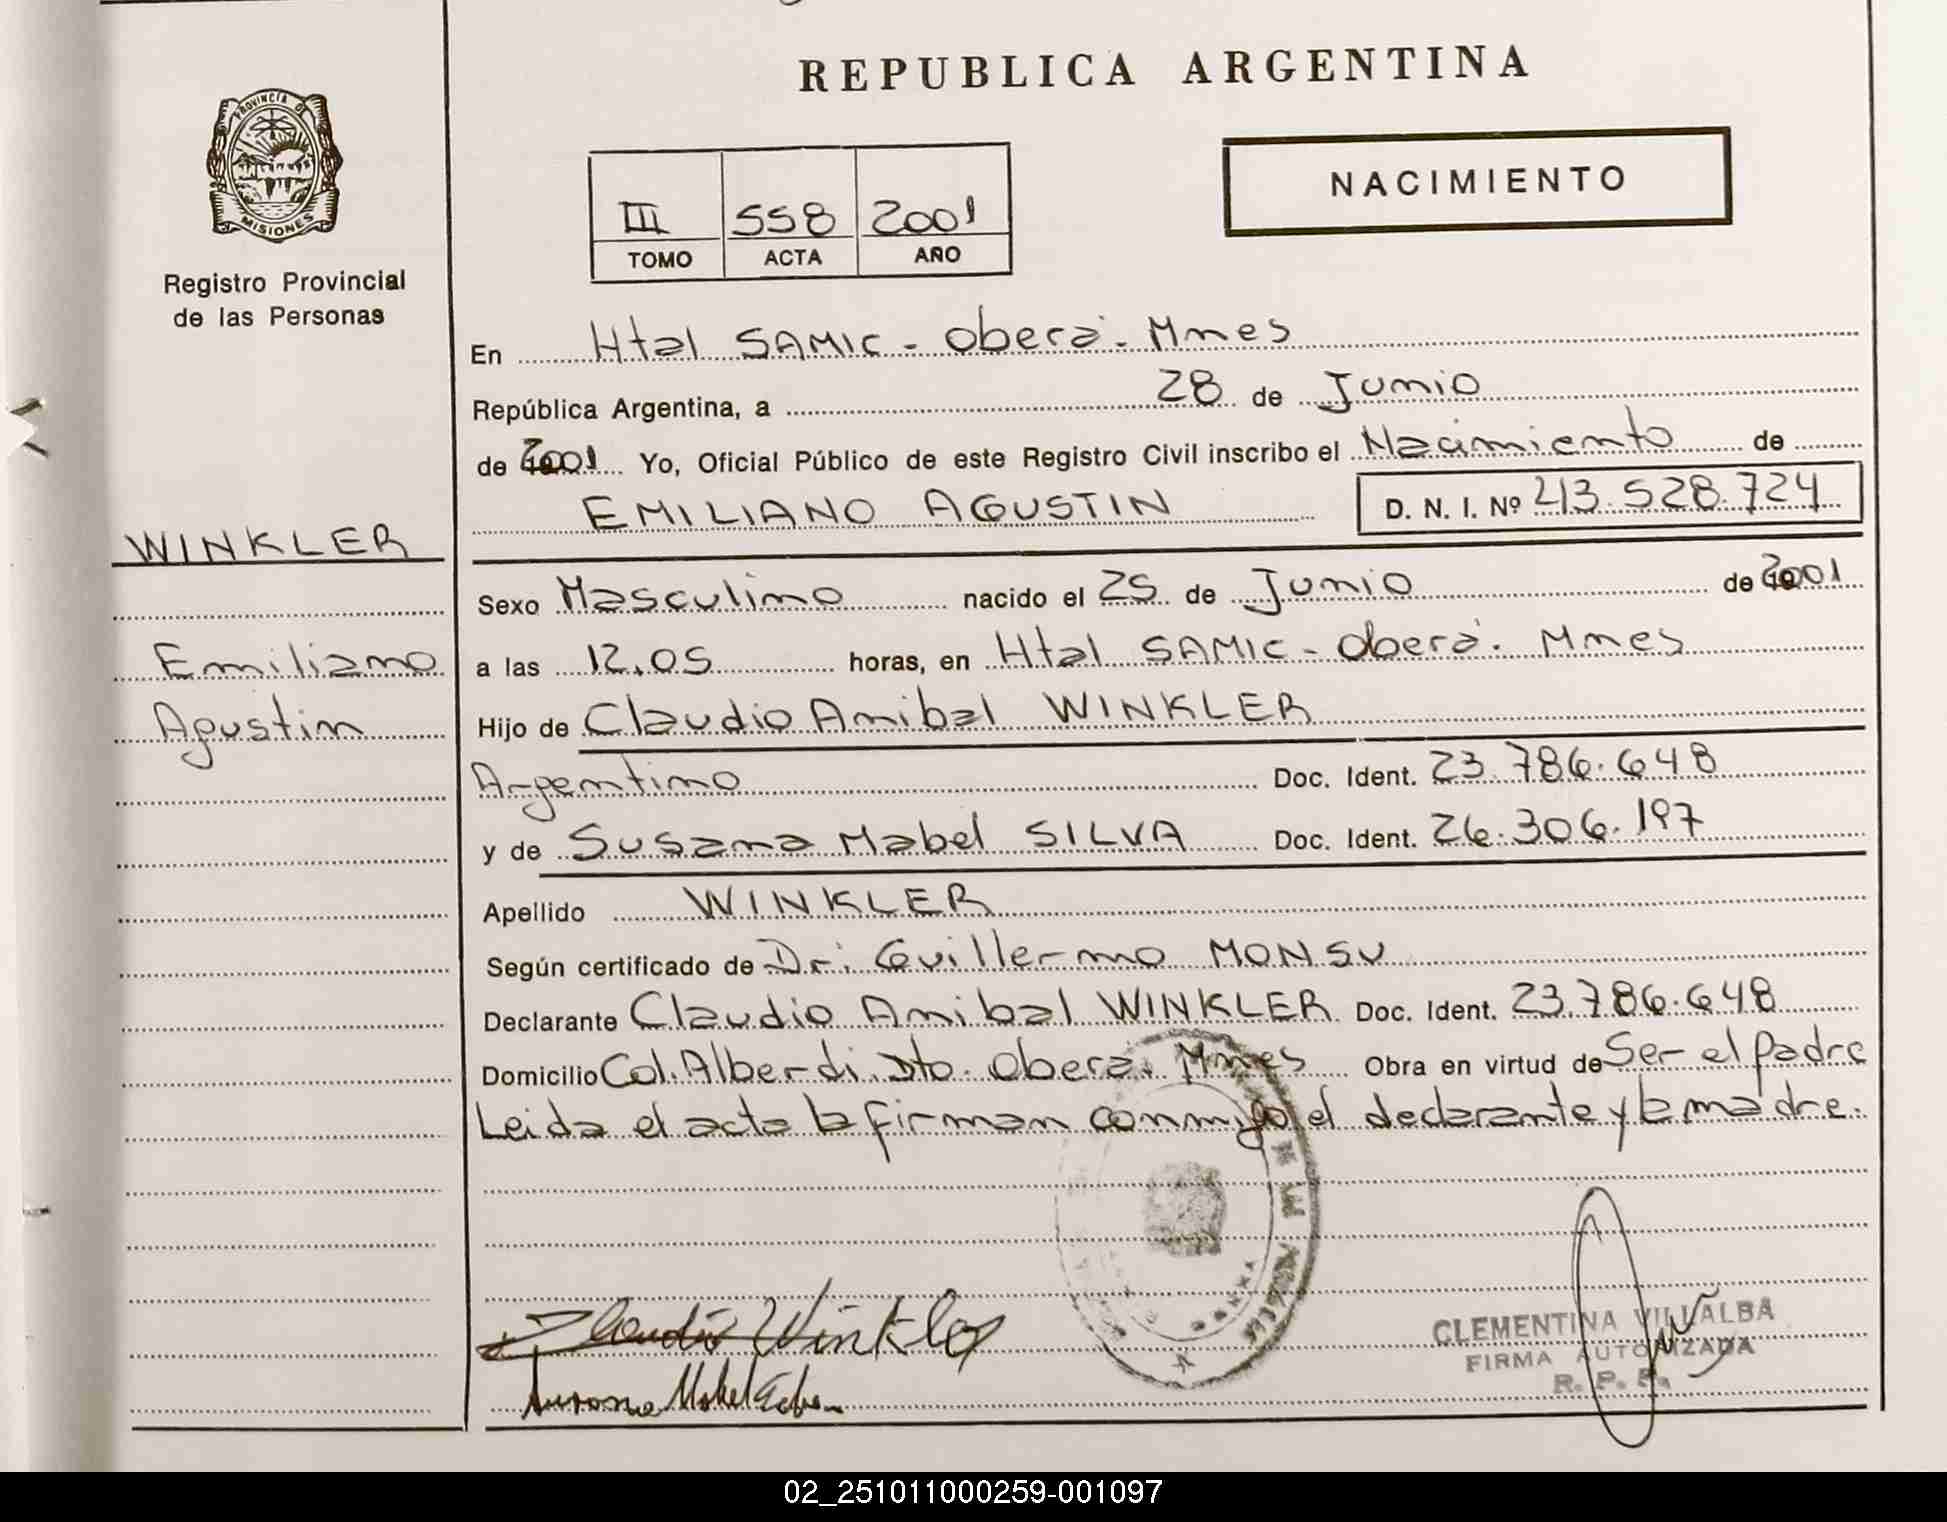 REPUBLICA ARGENTINA
PROVINCIA DE
MISIONES
Registro Provincial
de las Personas
NACIMIENTO
III 558 2001
TOMO ACTA AÑO
En Htal SAMIC - Oberá - Mnes
República Argentina, a 28 de Junio
de 2001 Yo, Oficial Público de este Registro Civil inscribo el Nacimiento de
EMILIANO AGUSTIN D. N. I. Nº 43.528.724
WINKLER
Emiliano
Agustin
Sexo Masculino nacido el 25 de Junio de 2001
a las 12.05 horas, en Htal SAMIC - Oberá - Mnes
Hijo de Claudio Anibal WINKLER
Argentino Doc. Ident. 23.786.648
y de Susana Mabel SILVA Doc. Ident. 26.306.197
Apellido WINKLER
Según certificado de Dr: Guillermo MONSU
Declarante Claudio Anibal WINKLER Doc. Ident. 23.786.648
Domicilio Col. Alberdi. Dto. Oberá. Mnes Obra en virtud de Ser el Padre
Leida el acta la firman conmigo el declarante y la madre.
Claudio Winkler
CLEMENTINA VILLALBA
FIRMA AUTORIZADA
R. P. P.
02_251011000259-001097